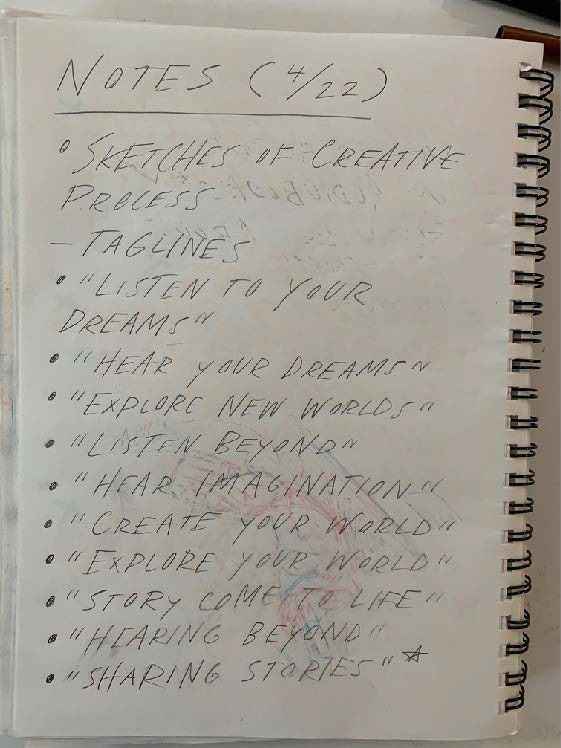 NOTES (4/22)
• SKETCHES OF CREATIVE
PROCESS
- TAGLINES
• "LISTEN TO YOUR
DREAMS"
• "HEAR YOUR DREAMS"
• "EXPLORE NEW WORLDS"
• "LISTEN BEYOND"
• "HEAR IMAGINATION"
• "CREATE YOUR WORLD"
• "EXPLORE YOUR WORLD"
• "STORY COME TO LIFE"
• "HEARING BEYOND"
• "SHARING STORIES" ☆